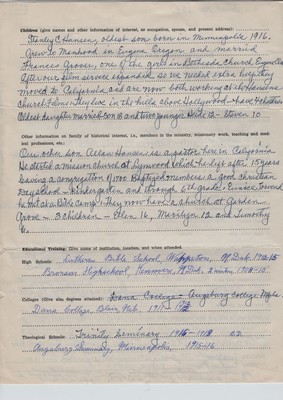 Children (give names and other information of interest, as occupation, spouse, and present address):
Stanley C Hansen, oldest son born in Minneapolis 1916.
Grew to Manhood in Eugene Oregon and married
Frances Grover, one of the girls in Bethesda Church Eugene Ore
After our film service expanded so we needed extra help they
moved to California and are now both working at the Hansens
Church films. They live in the hills above Hollywood - Have 4 children
Oldest daughter married. Son 18 and two younger Heide 12 - Steven 10
Other information on family of historical interest, i.e., members in the ministry, missionary work, teaching and medical professions, etc.:
Our other son Allan Hansen is a pastor here in California
He started a mission church at Lynwood which he left after 15 years
leaving a congregation of 1100 Baptized members. A good christian
Day school - Kindergarten and through 6th grade! Eunice Toward
he met at a Bible Camp! They now have a church at Garden
Grove - 3 children - Ellen 16, Marilyn 12 and Timothy
6.
Educational Training: Give name of institution, location, and when attended.
High Schools: Lutheran Bible School, Wahpeton, N. Dak. 1912-15
Bronson Highschool, Kenmore, N Dak, 1908-10
Colleges (Give also degrees attained): Dana College - Augsburg College Mpls.
Dana College, Blair Neb. 1917-
Theological Schools: Trinity Seminary 1916-1918
Augsburg Seminary, Minneapolis, 1915-16